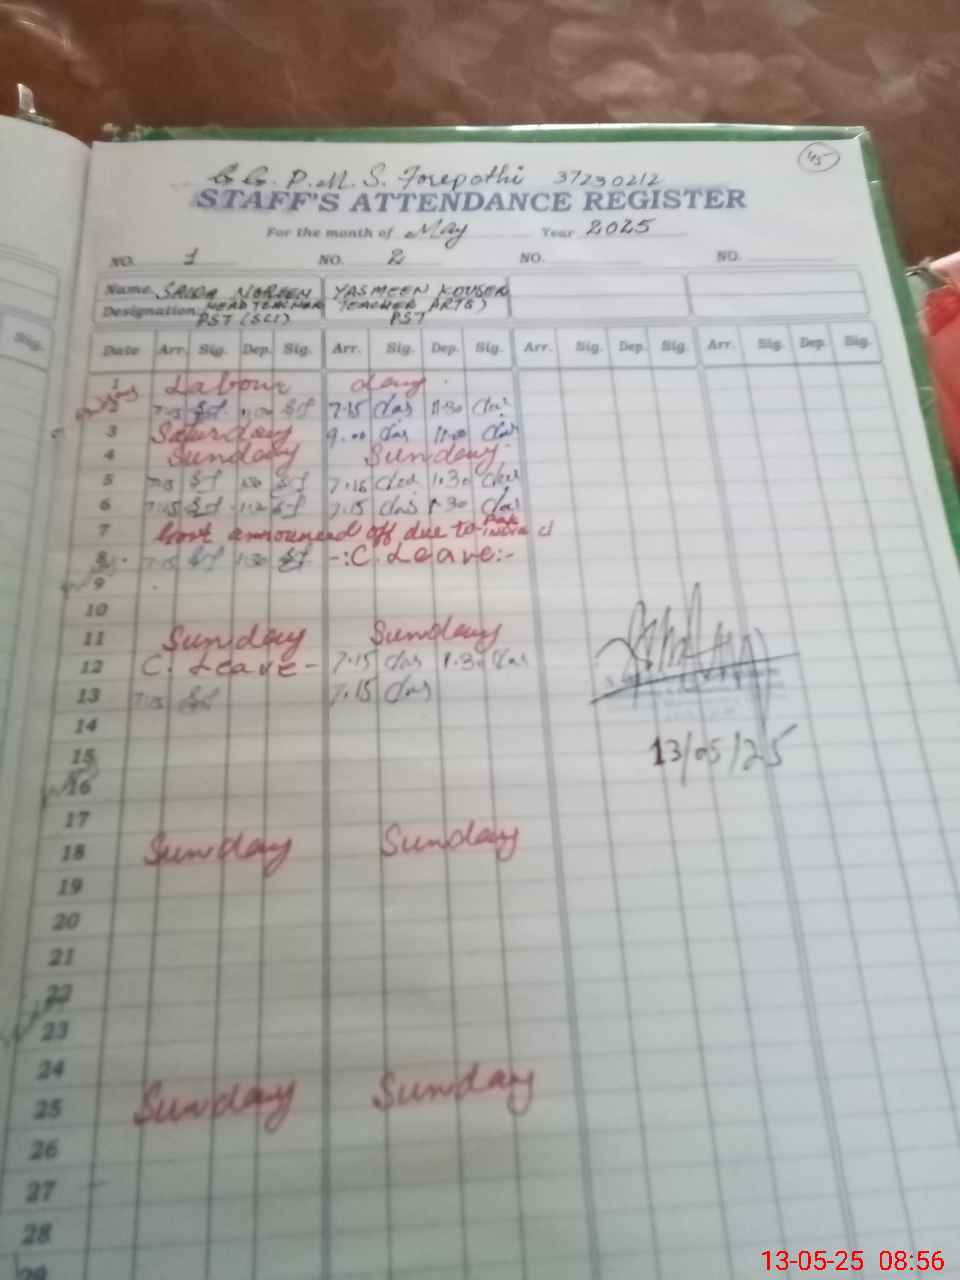 45
G.G. P.M.S. Torepothi 37230212
STAFF'S ATTENDANCE REGISTER
For the month of May Year 2025
NO. 1 NO. 2 NO. NO.
Name SAIDA NOREEN YASMEEN KOUSER
Designation HEAD TEACHER TEACHER ARTS)
PST (SCI) PST
Sig. Date Arr. Sig. Dep. Sig. Arr. Sig. Dep. Sig. Arr. Sig. Dep. Sig. Arr. Sig. Dep. Sig.
1 Labour day
2 7.15 7.15 11.30
3 Saturday 9.00 11.00
4 Sunday Sunday
5 7.15 1.30 7.15 1.30
6 7.15 7.15 1.30
7 Govt announced off due to Pak India
8 7.15 1.30 -:C. Leave:-
9
10
11 Sunday Sunday
12 C. Leave - 7.15 1.30
13 7.15 7.15
14
15 13/05/25
16
17
18 Sunday Sunday
19
20
21
22
23
24
25 Sunday Sunday
26
27
28
29
13-05-25 08:56